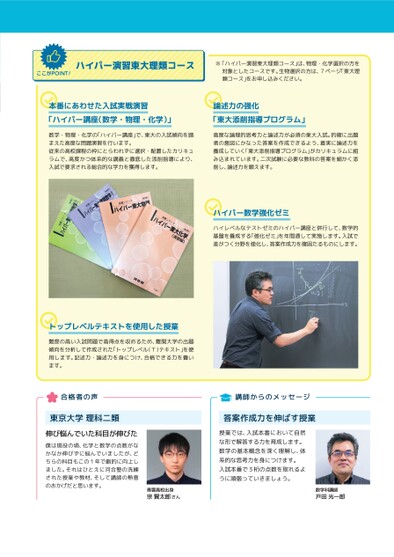 ここがPOINT!
ハイパー演習東大理類コース
※「ハイパー演習東大理類コース」は、物理・化学選択の方を
対象としたコースです。生物選択の方は、7ページ「東大理
類コース」をお申し込みください。
本番にあわせた入試実戦演習
「ハイパー講座(数学・物理・化学)」
数学・物理・化学の「ハイパー講座」で、東大の入試傾向を踏
まえた高度な問題演習を行います。
従来の高校課程の枠にとらわれずに選択・配置したカリキュ
ラムで、高度かつ体系的な講義と徹底した添削指導により、
入試で要求される総合的な学力を獲得します。
論述力の強化
「東大添削指導プログラム」
高度な論理的思考力と論述力が必須の東大入試。的確に出題
者の意図にかなった答案を作成できるよう、着実に論述力を
養成していく「東大添削指導プログラム」がカリキュラムに組
み込まれています。二次試験に必要な教科の答案を細かく添
削し、論述力を鍛えます。
ハイパー数学強化ゼミ
ハイレベルなテストゼミのハイパー講座と併行して、数学的
基礎を養成する「強化ゼミ」を年間通して実施します。入試で
差がつく分野を強化し、答案作成力を確固たるものにします。
ハイパー東大化学
トップレベルテキストを使用した授業
難度の高い入試問題で高得点を収めるため、難関大学の出題
傾向を分析して作成された「トップレベル(T)テキスト」を使
用します。記述力・論述力を身につけ、合格できる力を養い
ます。
合格者の声
東京大学 理科二類
伸び悩んでいた科目が伸びた
僕は現役の頃、化学と数学の点数がな
かなか伸びずに悩んでいましたが、ど
ちらの科目もこの1年で劇的に向上し
ました。それはひとえに河合塾の洗練
された授業や教材、そして講師の熱意
のおかげだと思います。
青雲高校出身
宗 賢太郎さん
講師からのメッセージ
答案作成力を伸ばす授業
授業では、入試本番において自然
な形で解答する力を育成します。
数学の基本概念を深く理解し、体
系的な思考力を身につけます。
入試本番で3桁の点数を取れるよ
うに頑張っていきましょう。
数学科講師
戸田 光一郎